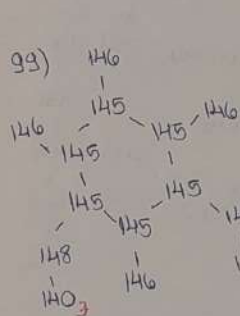 99)
146
145
146 145 146
145
145 145
145
148 146
140